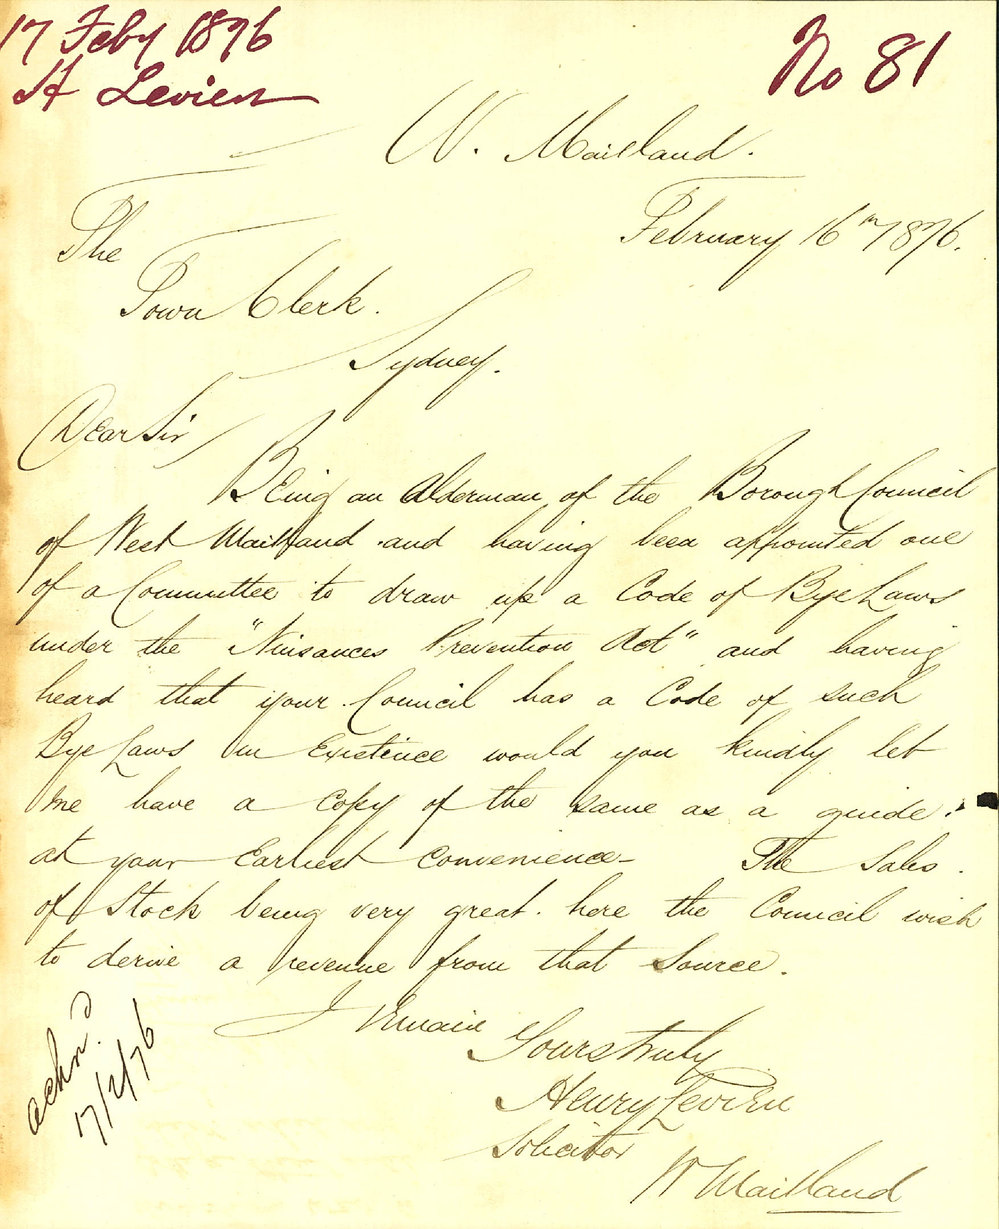 17 Feby 1876
H Levien
No 81
W. Maitland.
February 16th 1876.
The
Town Clerk.
Sydney.
Dear Sir
Being an Alderman of the Borough Council
of West Maitland and having been appointed one
of a Committee to draw up a Code of Bye Laws
under the "Nuisances Prevention Act" and having
heard that your Council has a Code of such
Bye Laws in Existence would you kindly let
me have a Copy of the same as a guide.
at your Earliest Convenience - The Sales
of Stock being very great. here the Council wish
to derive a revenue from that Source.
I remain
Yours truly
Henry Levien
Solicitor
W Maitland
ackn.d
17/2/76